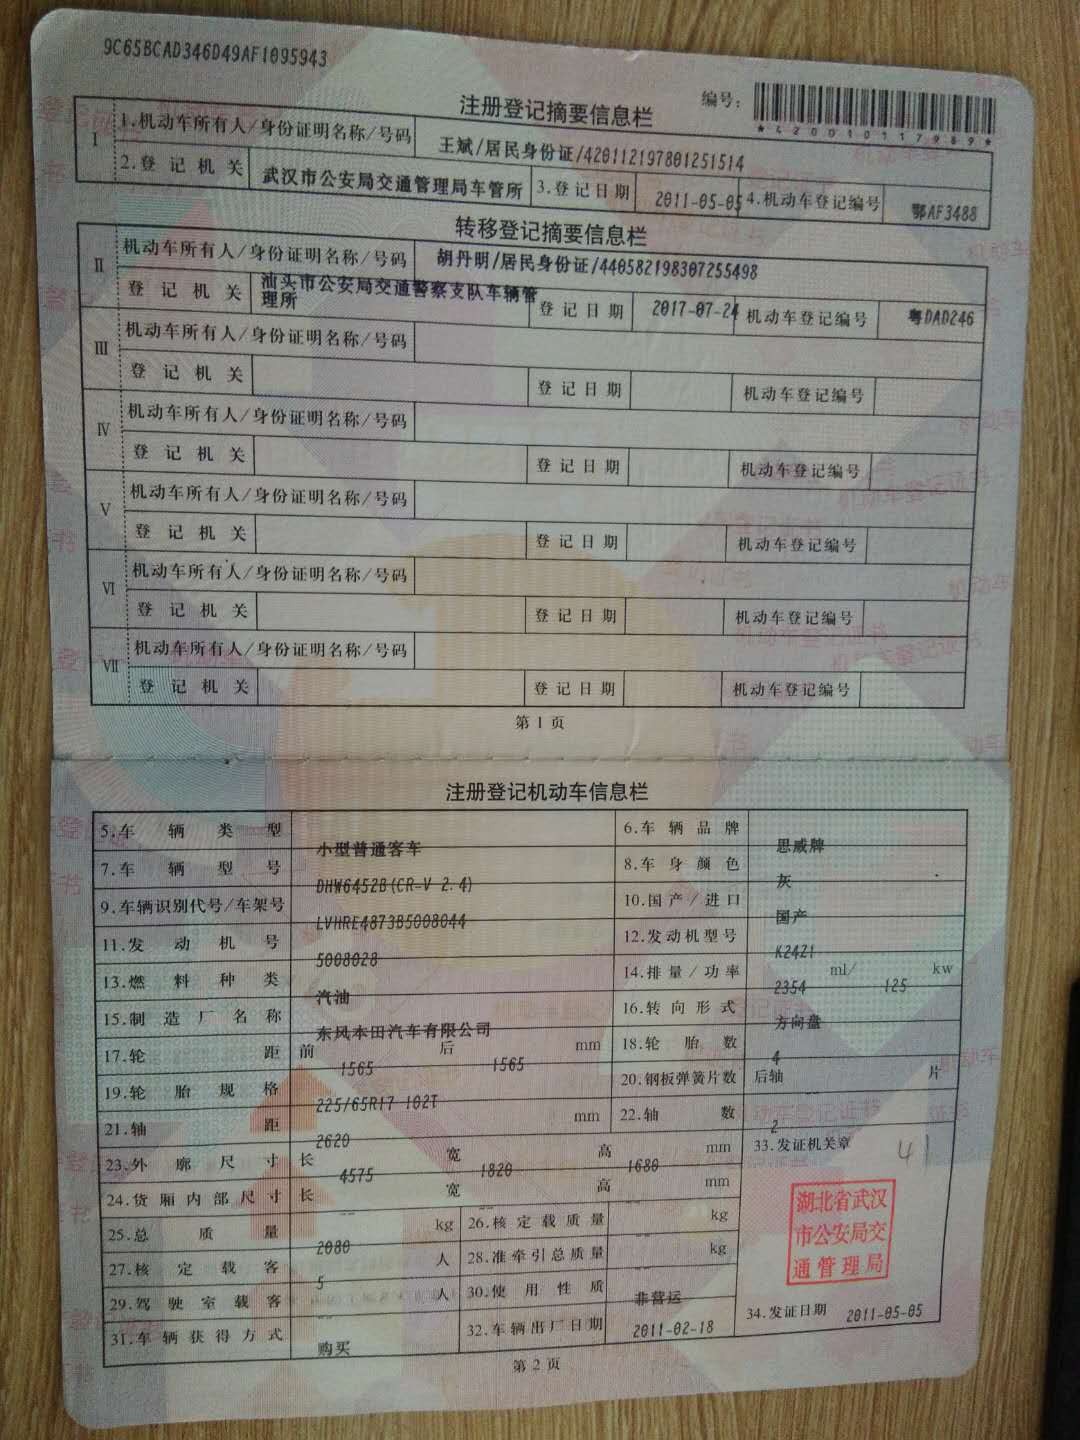 9C65BCAD346D49AF1095943
注册登记摘要信息栏
编号:
*420010117989*
I 1.机动车所有人/身份证明名称/号码 王斌/居民身份证/420112197801251514
2.登记机关 武汉市公安局交通管理局车管所 3.登记日期 2011-05-05 4.机动车登记编号 鄂AF3488
转移登记摘要信息栏
II 机动车所有人/身份证明名称/号码 胡丹明/居民身份证/440582198307255498
登记机关 汕头市公安局交通警察支队车辆管理所 登记日期 2017-07-24 机动车登记编号 粤DAD246
III 机动车所有人/身份证明名称/号码
登记机关 登记日期 机动车登记编号
IV 机动车所有人/身份证明名称/号码
登记机关 登记日期 机动车登记编号
V 机动车所有人/身份证明名称/号码
登记机关 登记日期 机动车登记编号
VI 机动车所有人/身份证明名称/号码
登记机关 登记日期 机动车登记编号
VII 机动车所有人/身份证明名称/号码
登记机关 登记日期 机动车登记编号
第1页
注册登记机动车信息栏
5.车辆类型 小型普通客车 6.车辆品牌 思威牌
7.车辆型号 DHW6452B(CR-V 2.4) 8.车身颜色 灰
9.车辆识别代号/车架号 LVHRE4873B5008044 10.国产/进口 国产
11.发动机号 5008028 12.发动机型号 K24Z1
13.燃料种类 汽油 14.排量/功率 2354 ml/ 125 kw
15.制造厂名称 东风本田汽车有限公司 16.转向形式 方向盘
17.轮距 前 1565 后 1565 mm 18.轮胎数 4
19.轮胎规格 225/65R17 102T 20.钢板弹簧片数 后轴 片
21.轴距 2620 mm 22.轴数 2
23.外廓尺寸 长 4575 宽 1820 高 1680 mm 33.发证机关章 41
24.货厢内部尺寸 长 -- 宽 -- 高 -- mm
湖北省武汉
市公安局交
通管理局
25.总质量 2080 kg 26.核定载质量 -- kg
27.核定载客 5 人 28.准牵引总质量 -- kg
29.驾驶室载客 -- 人 30.使用性质 非营运
31.车辆获得方式 购买 32.车辆出厂日期 2011-02-18 34.发证日期 2011-05-05
第2页